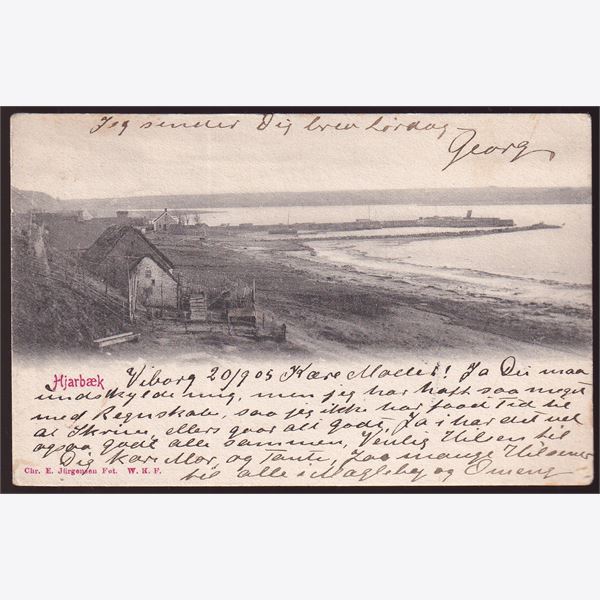 Jeg sender Dig brev Lørdag
Georg
Hjarbæk
Viborg 20/9 05 Kære Ja Du maa
undskylde mig, men jeg har haft saa meget
med Regnskab, saa jeg ikke har faaet Tid til
at Skrive, ellers gaar alt godt, Ja i har det vel
ogsaa godt alle sammen, Venlig Hilsen til
Dig kære Mor, og Tante, Saa mange Hilsener
til alle i Magleby og Omeng
Chr. E. Jürgensen Fot. W. K. F.